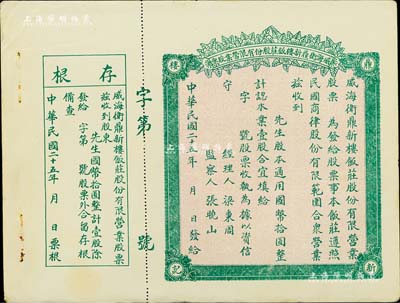 威海衛鼎新樓飯莊股份有限營業股票
鼎
樓
新
記
威海衛鼎新樓飯莊股份有限營業
股票 為發給股票事本飯莊遵照
民國商律股份有限範圍合眾營業
茲收到
先生股本通用國幣拾圓整
計認水業壹股合宜填給
字 號股票收執為據以資信
守
經理人 梁東周
監察人 張晚山
中華民國二十五年 月 日發給
字第 號
存根
威海衛鼎新樓飯莊股份有限營業股票
茲收到股東
先生國幣拾圓整計壹股除
發給 字第 號股票外合留存根
備查
中華民國二十五年 月 日票根